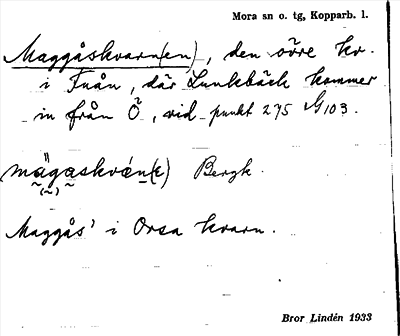 Mora sn o. tg, Kopparb. l.
Maggåskvarn(en), den övre kv.
i Fuån, där Lunkbäck kommer
in från Ö, vid punkt 275 G103.
Bergk.
Maggås' i Orsa kvarn.
Bror Lindén 1933